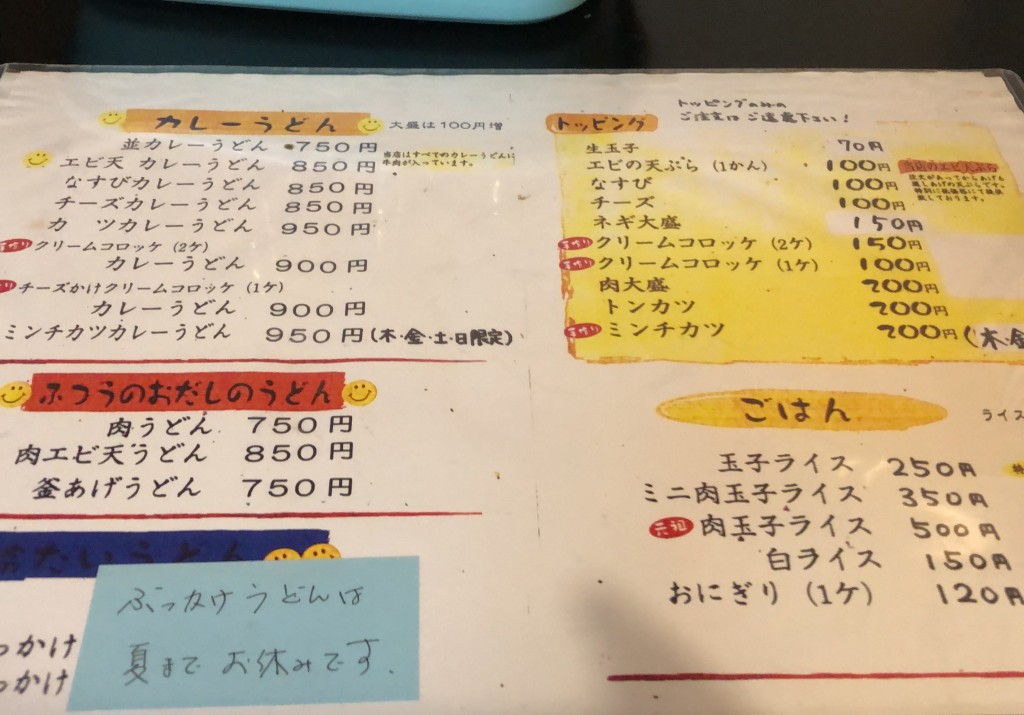 カレーうどん 大盛は100円増
並カレーうどん 750円
当店はすべてのカレーうどんに
牛肉が入っています。
エビ天 カレーうどん 850円
なすびカレーうどん 850円
チーズカレーうどん 850円
カ ツカレーうどん 950円
手作り クリームコロッケ (2ケ)
カレーうどん 900円
チーズかけクリームコロッケ (1ケ)
カレーうどん 900円
ミンチカツカレーうどん 950円 (木・金・土・日限定)
ふつうのおだしのうどん
肉うどん 750円
肉エビ天うどん 850円
釜あげうどん 750円
たいうどん
ぶっかけうどんは
夏まで お休みです.
っかけ
っかけ
トッピング
トッピングのみの
ご注文は ご遠慮下さい!
生玉子 70円
エビの天ぷら (1かん) 100円
なすび 100円
チーズ 100円
ネギ大盛 150円
手作り クリームコロッケ (2ケ) 150円
手作り クリームコロッケ (1ケ) 100円
肉大盛 200円
トンカツ 200円
手作り ミンチカツ 200円 (木・金
ごはん
ライス
玉子ライス 250円
ミニ肉玉子ライス 350円
元祖 肉玉子ライス 500円
白ライス 150円
おにぎり (1ケ) 120円